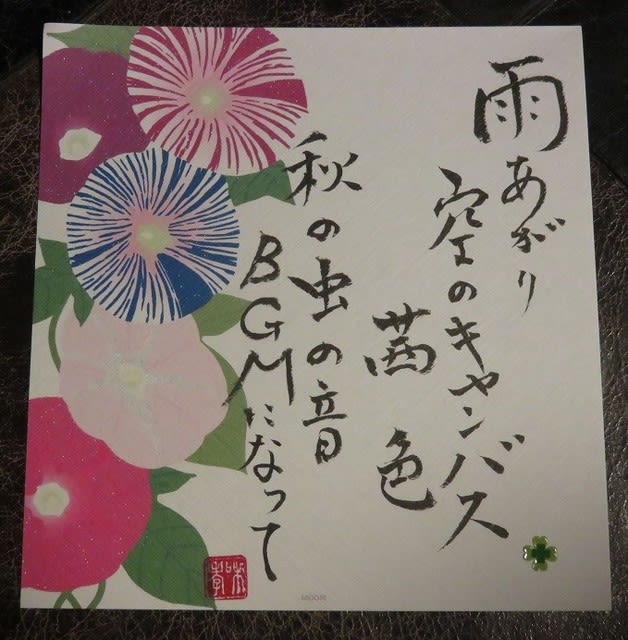 雨あがり
空のキャンバス
茜色
秋の虫の音
BGMになって
MIDORI